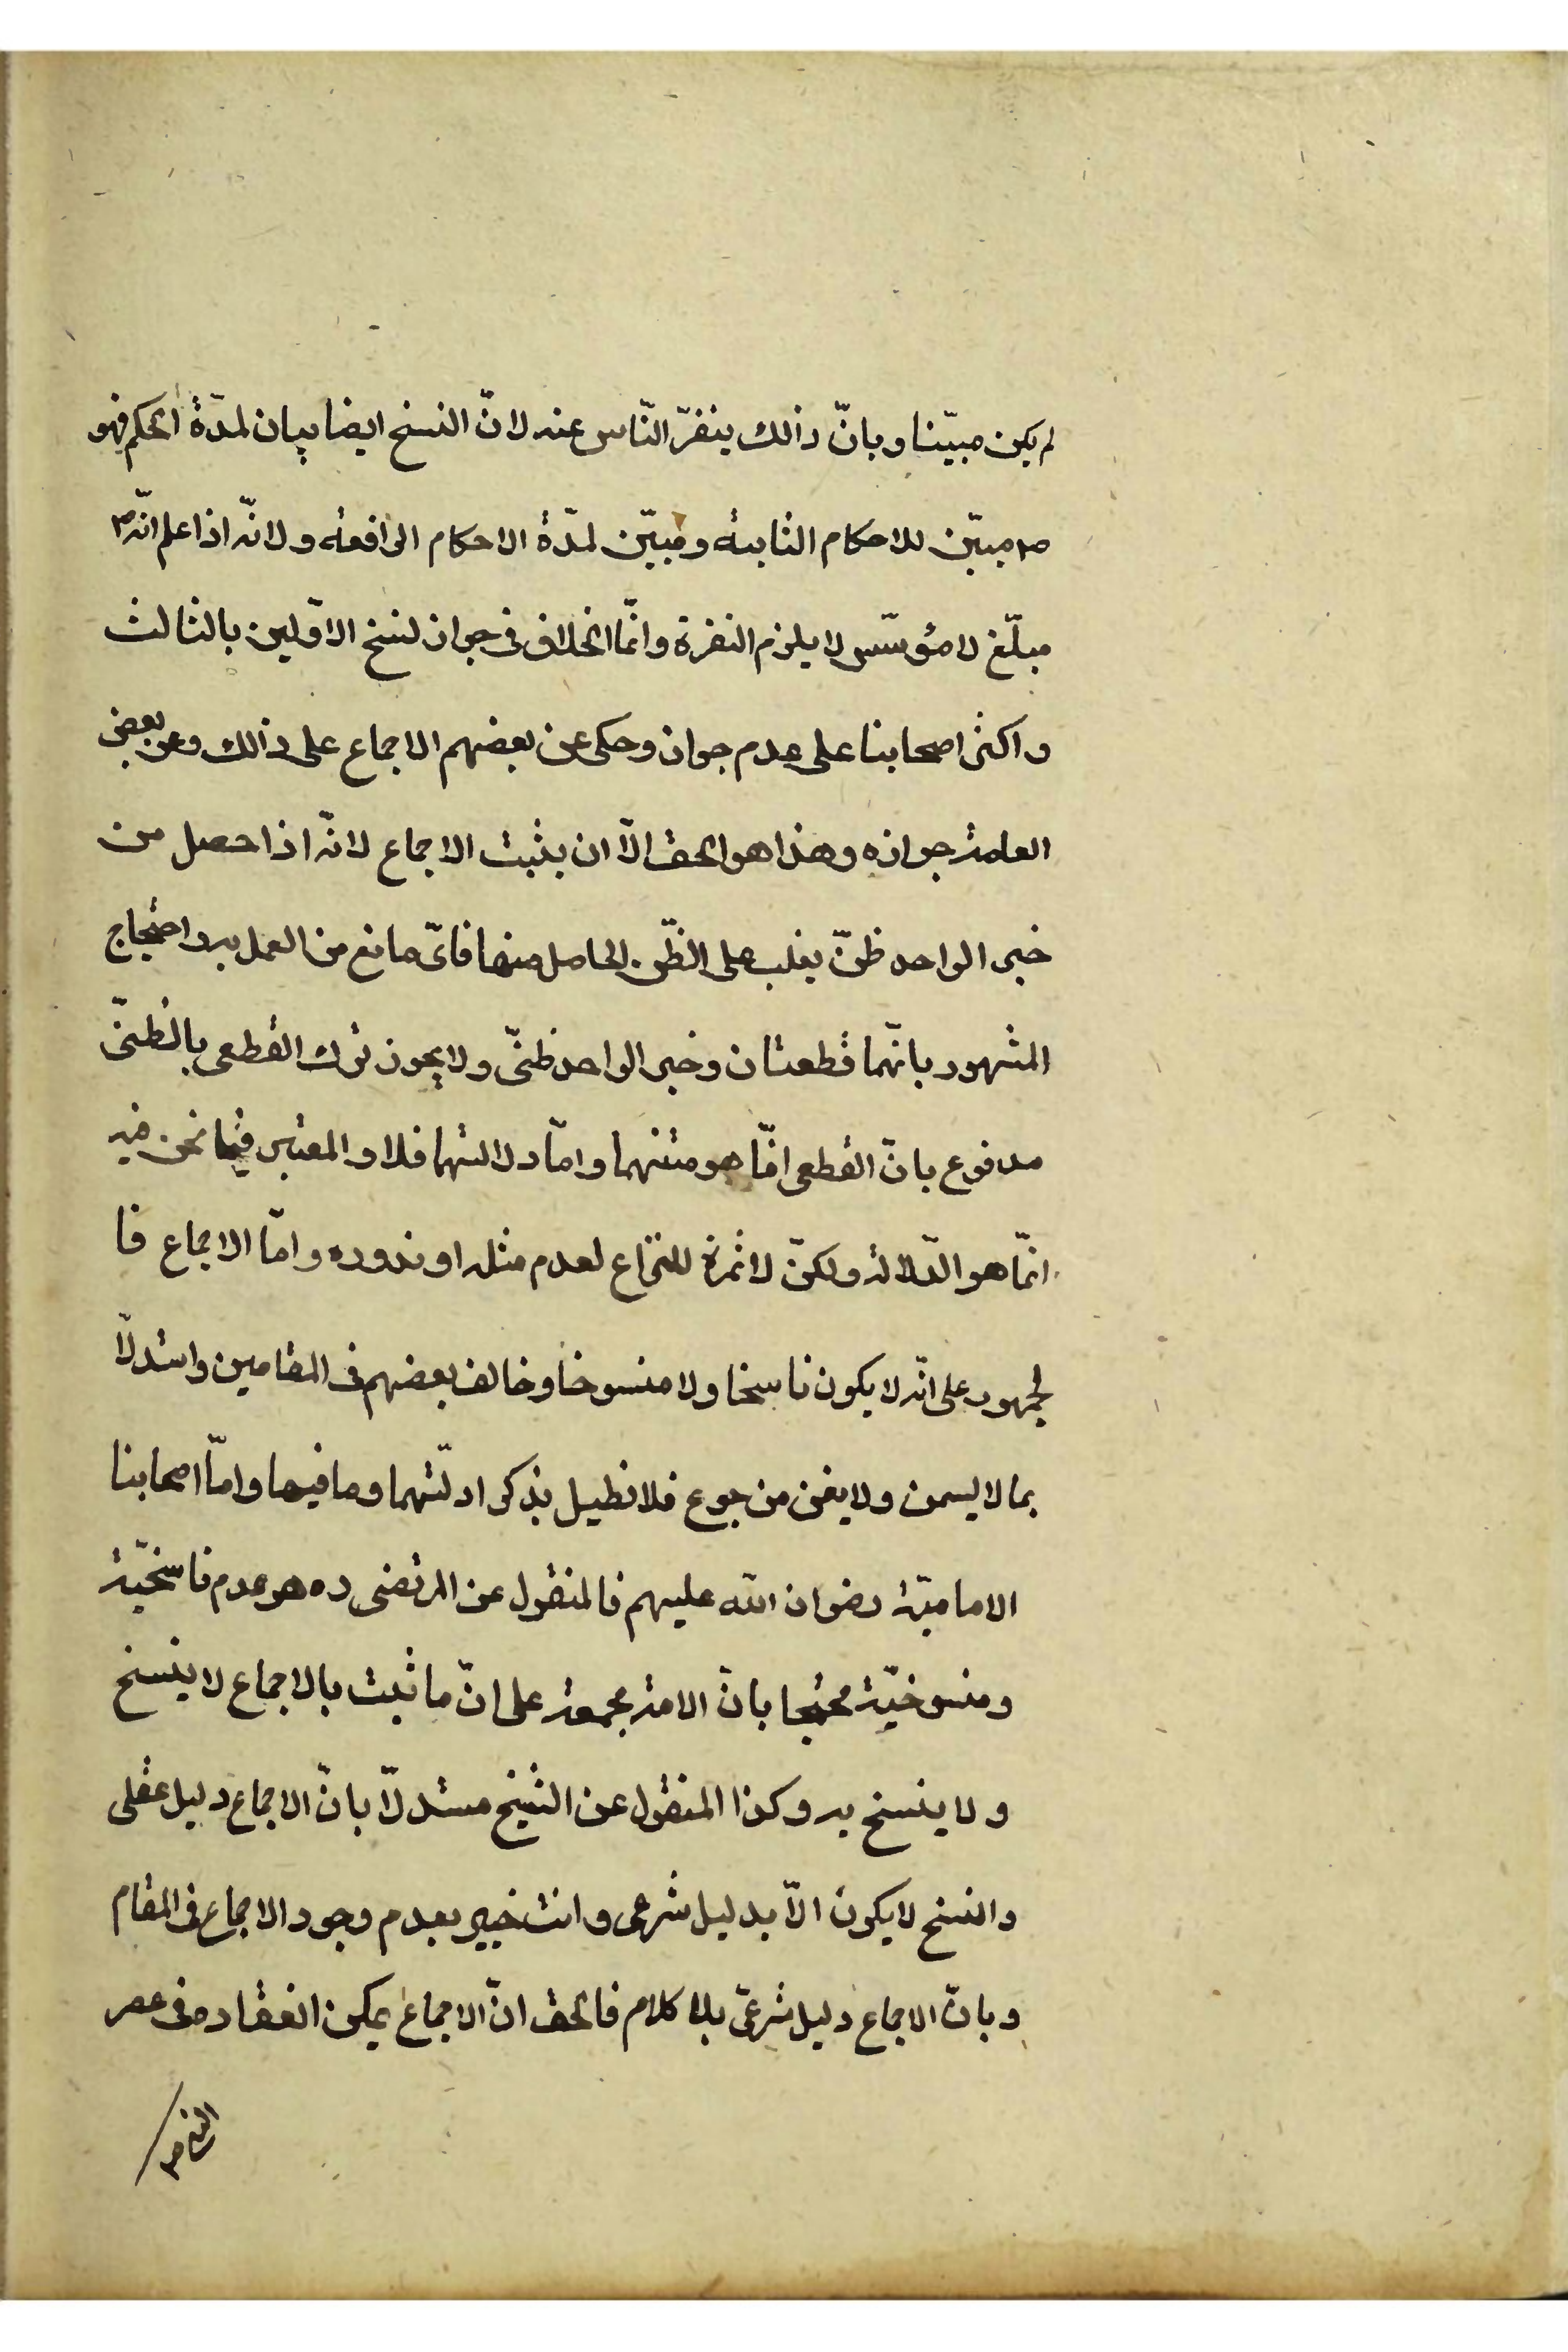 لم يكن مبيّنا وبانّ ذالك ينفرّ النّاس عنه لانّ النسخ ايضا بيان لمدّة الحكم فهو
ص مبيّن للاحكام الثابتة ومبيّن لمدّة الاحكام الرافعة ولانّه اذا علم انّه ص
مبلّغ لا مؤسّس لا يلزم النفرة وانّما الخلاف فى جواز نسخ الاوّلين بالثالث
واكثر اصحابنا على عدم جوازه وحكى عن بعضهم الاجماع على ذالك وعن بعض
العامة جوازه وهذا هو الحق الّا ان يثبت الاجماع لانّه اذا حصل من
خبر الواحد ظنّ يغلب على الظّن الحاصل منها فاىّ مانع من العمل به واحتجاج
المشهور بانّهما قطعيتان وخبر الواحد ظنّى ولا يجوز ترك القطعى بالظنّى
مدفوع بانّ القطعى انّما هو متنهما وامّا دلالتهما فلا والمعتبر فيما نحن فيه
انّما هو الدّلالة ولكنّ لا ثمرة للنزاع لعدم مثله او ندوره وامّا الاجماع فا
لجمهور على انّه لا يكون ناسخا ولا منسوخا وخالف بعضهم فى المقامين واستدلّا
بما لا يسمن ولا يغنى من جوع فلا نطيل بذكر ادلّتهما وما فيها وامّا اصحابنا
الاماميّة رضوان الله عليهم فالمنقول عن المرتضى ره هو عدم ناسخيّة
ومنسوخيّة محتجا بانّ الامة مجمعة على انّ ما ثبت بالاجماع لا ينسخ
ولا ينسخ به وكذا المنقول عن الشيخ مستدلّا بانّ الاجماع دليل عقلى
والنسخ لا يكون الّا بدليل شرعى وانت خبير بعدم وجود الاجماع فى المقام
وبانّ الاجماع دليل شرعىّ بلا كلام فالحق انّ الاجماع يمكن انعقاده فى عصر
النبى ص